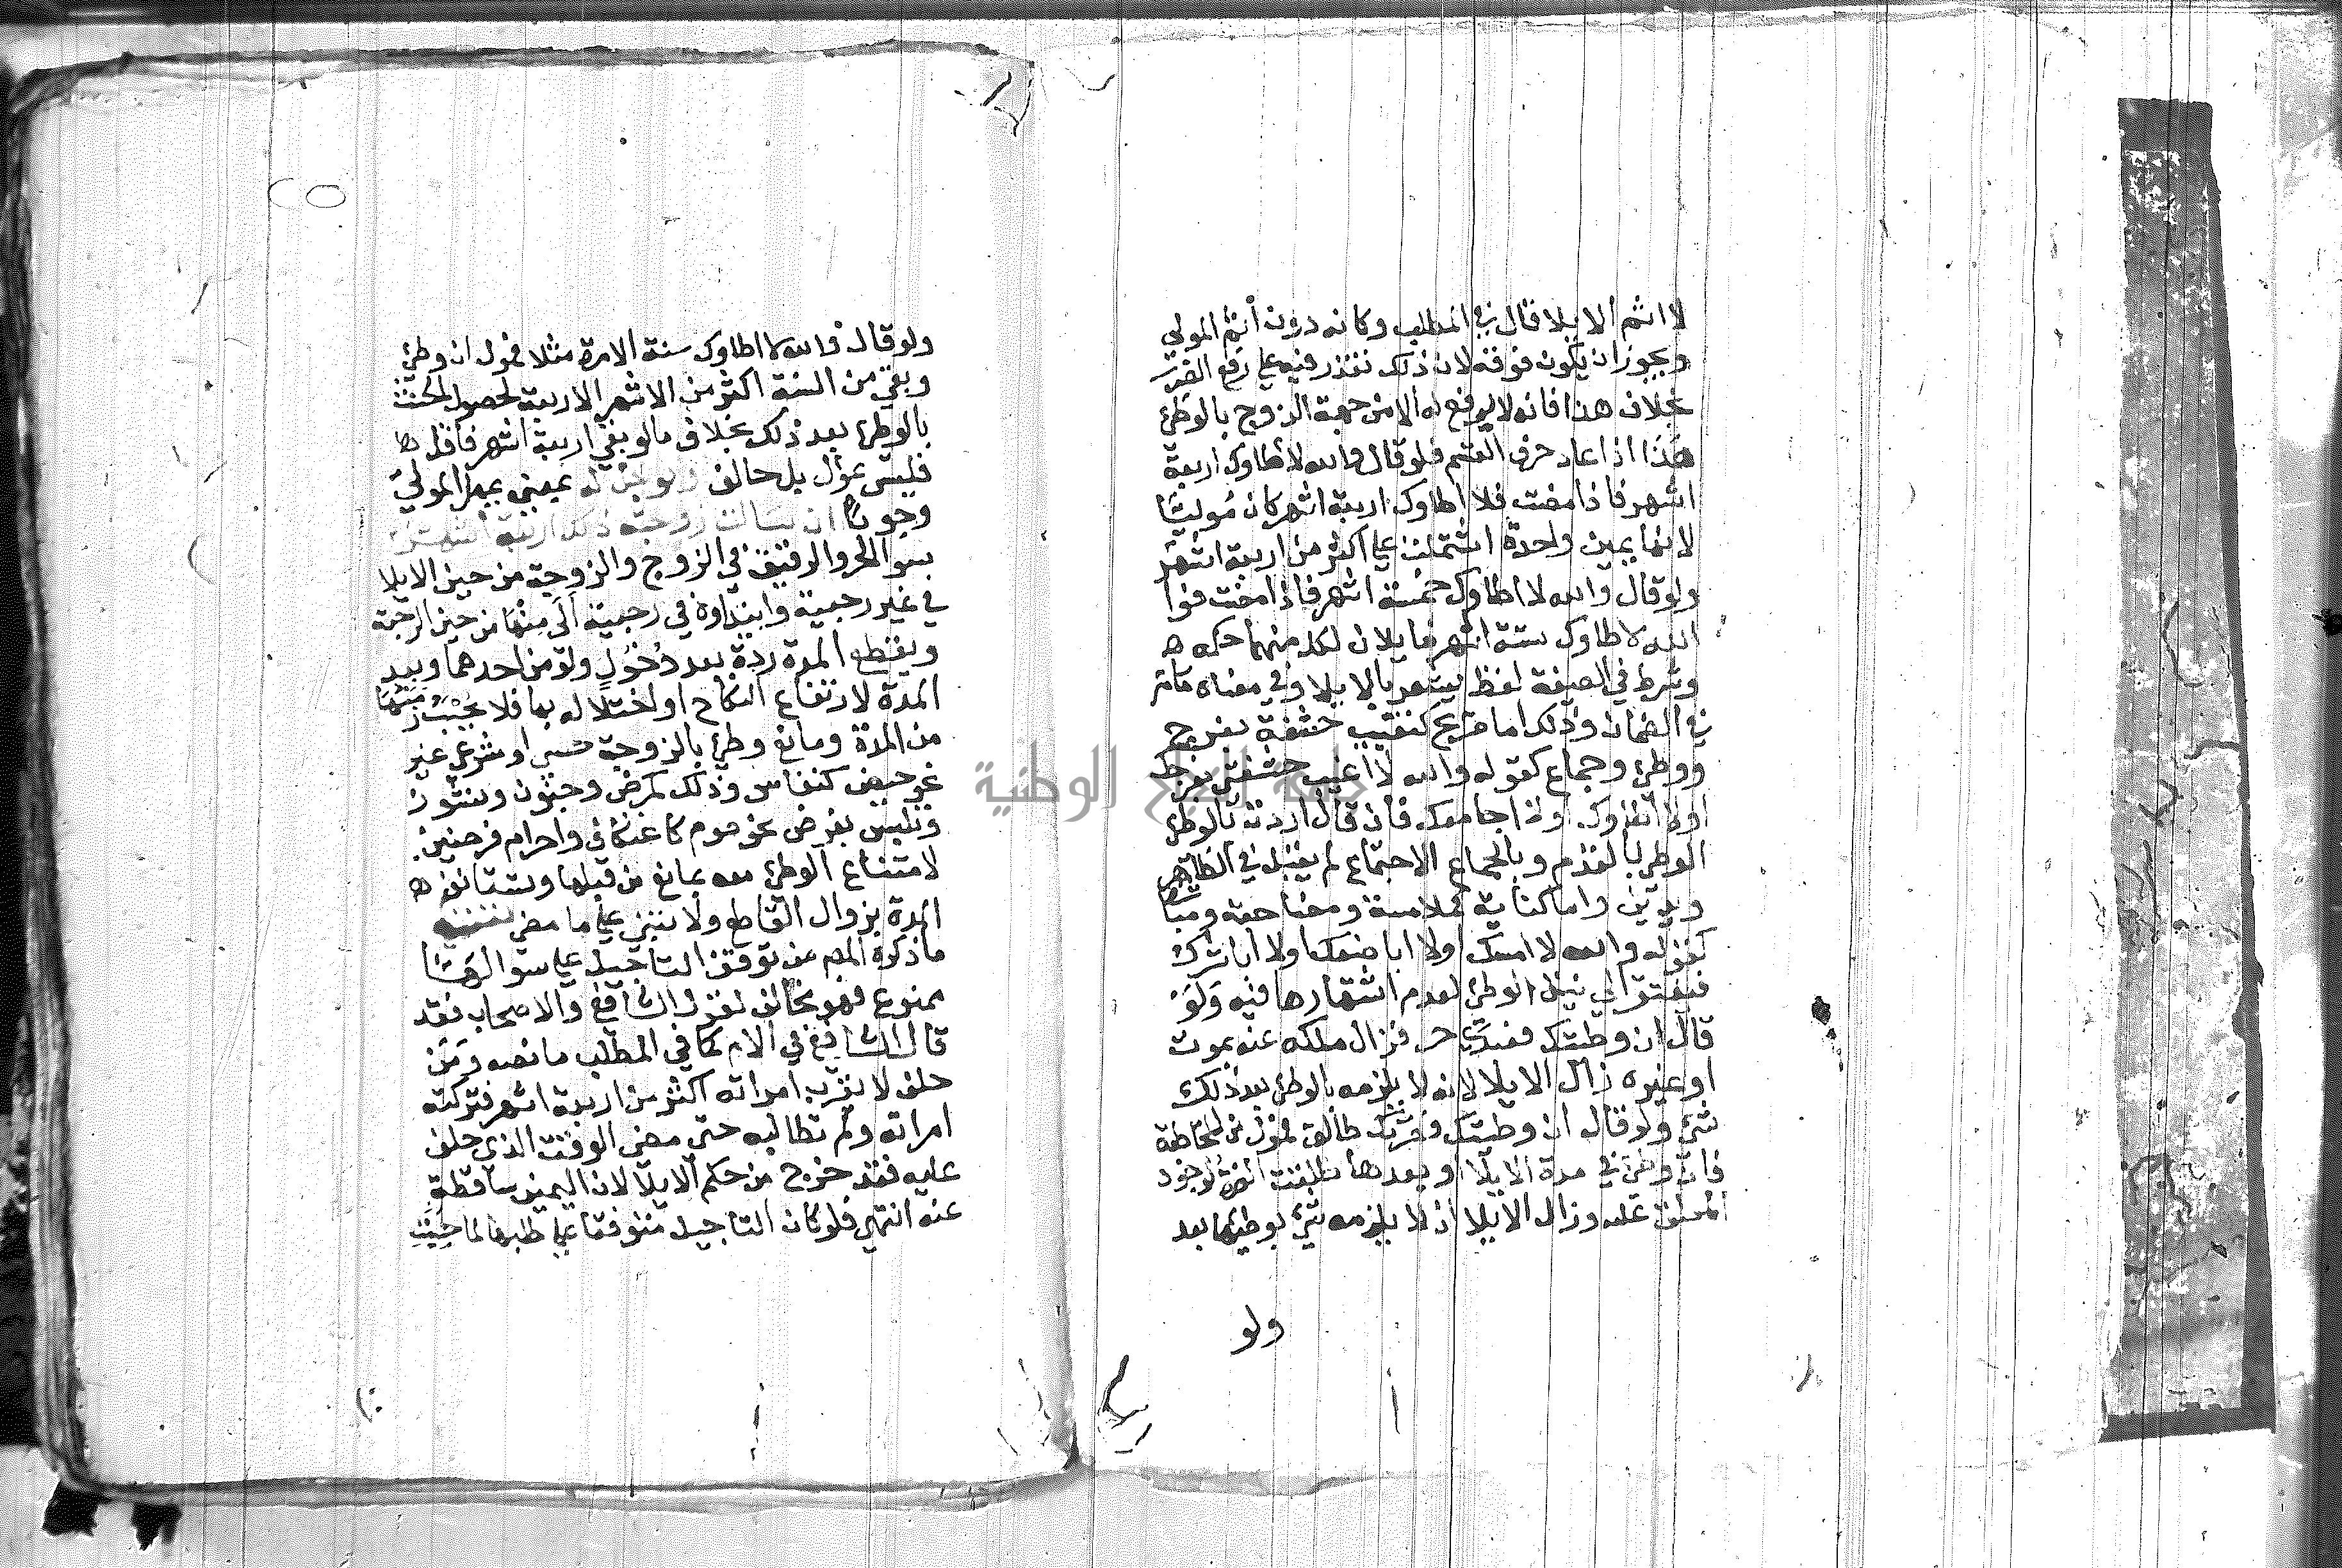 لا اثم الايلا قال في المطلب وكانه دون اثم المولي
ويجوز ان يكون فوقه لان ذلك تقدر فيه علي رفع الضرر
بخلاف هذا فانه لا يرفع له الا من جهة الزوج بالوطئ
هذا اذا عاد حرف القسم فلو قال والله لا اطاوك اربعة
اشهر فاذا مضت فلا اطاوك اربعة اشهر كان موليًا
لانها يمين واحدة اشتملت علي اكثر من اربعة اشهر
ولو قال والله لا اطاوك خمسة اشهر فاذا مضت فوا
الله لا اطاوك ستة اشهر فايلان لكل منهما حكمه
وشرط في الصيغة لفظ يشعر بالايلا وفي معناه ما مر
في الضمان وذلك اما صريح كتغييب حشفة بفرج
ووطئ وجماع كقوله والله لا اغيب حشفتي بفرجك
اولا اطاوك اولا اجامعك فان قال اردت بالوطئ
الوطئ بالقدم وبالجماع الاجتماع لم يقبل في الظاهر
ويدين واما كناية كملامسة ومضاجعة ومباشرة
كقوله والله لا امسك اولا اباضعك اولا اباشرك
فيفتقر الي نية الوطئ لعدم اشتهارها فيه ولو
قال ان وطئتك فعبدي حر فزال ملكه عنه بموت
او غيره زال الايلا لانه لا يلزمه بالوطئ بعد ذلك
شئ ولو قال ان وطئتك فضرتك طالق فمول من المخاطبة
فان وطئ في مدة الايلا او بعدها طلقت الضرة لوجود
المعلق عليه وزال الايلا اذ لا يلزمه شئ بوطئها بعد
ولو
ولو قال والله لا اطاوك سنة الا مرة مثلا فمول ان وطئ
وبقي من السنة اكثر من الاشهر الاربعة لحصول الحنث
بالوطئ بعد ذلك بخلاف ما لو بقي اربعة اشهر فاقل
فليس بمول بل حالف يمهل المولي
وجوبًا ان سالت زوجته ذلك اربعة اشهر
سوا الحر والرقيق في الزوج والزوجة من حين الايلا
في غير رجعية وابتداوه في رجعية الي منها من حين الرجعة
ويقطع المدة ردة بعد دخول ولو من احدهما وبعد
المدة لارتفاع النكاح او اختلاله بها فلا يحسب زمنها
من المدة ومانع وطئ بالزوجة حسي او شرعي غير
نحو حيض كنفاس وذلك كمرض وجنون ونشوز
وتلبس بفرض نحو صوم كاعتكاف واحرام فرضين
لامتناع الوطئ معه بمانع من قبلها وتستانف
المدة بزوال القاطع ولا تبني علي ما مضي تنبيه
ما ذكره المص من توقف التاجيل علي سوالها
ممنوع فهو مخالف لقول الشافعي والاصحاب فقد
قال الشافعي في الام كما في المطلب ما نصه ومن
حلف لا يقرب امراته اكثر من اربعة اشهر فتركته
امراته ولم تطالبه حتي مضي الوقت الذي حلف
عليه فقد خرج من حكم الايلا لان اليمين ساقطة
عنه انتهي فلو كان التاجيل متوقفا علي طلبها لما حسبت
جامعة النجاح الوطنية